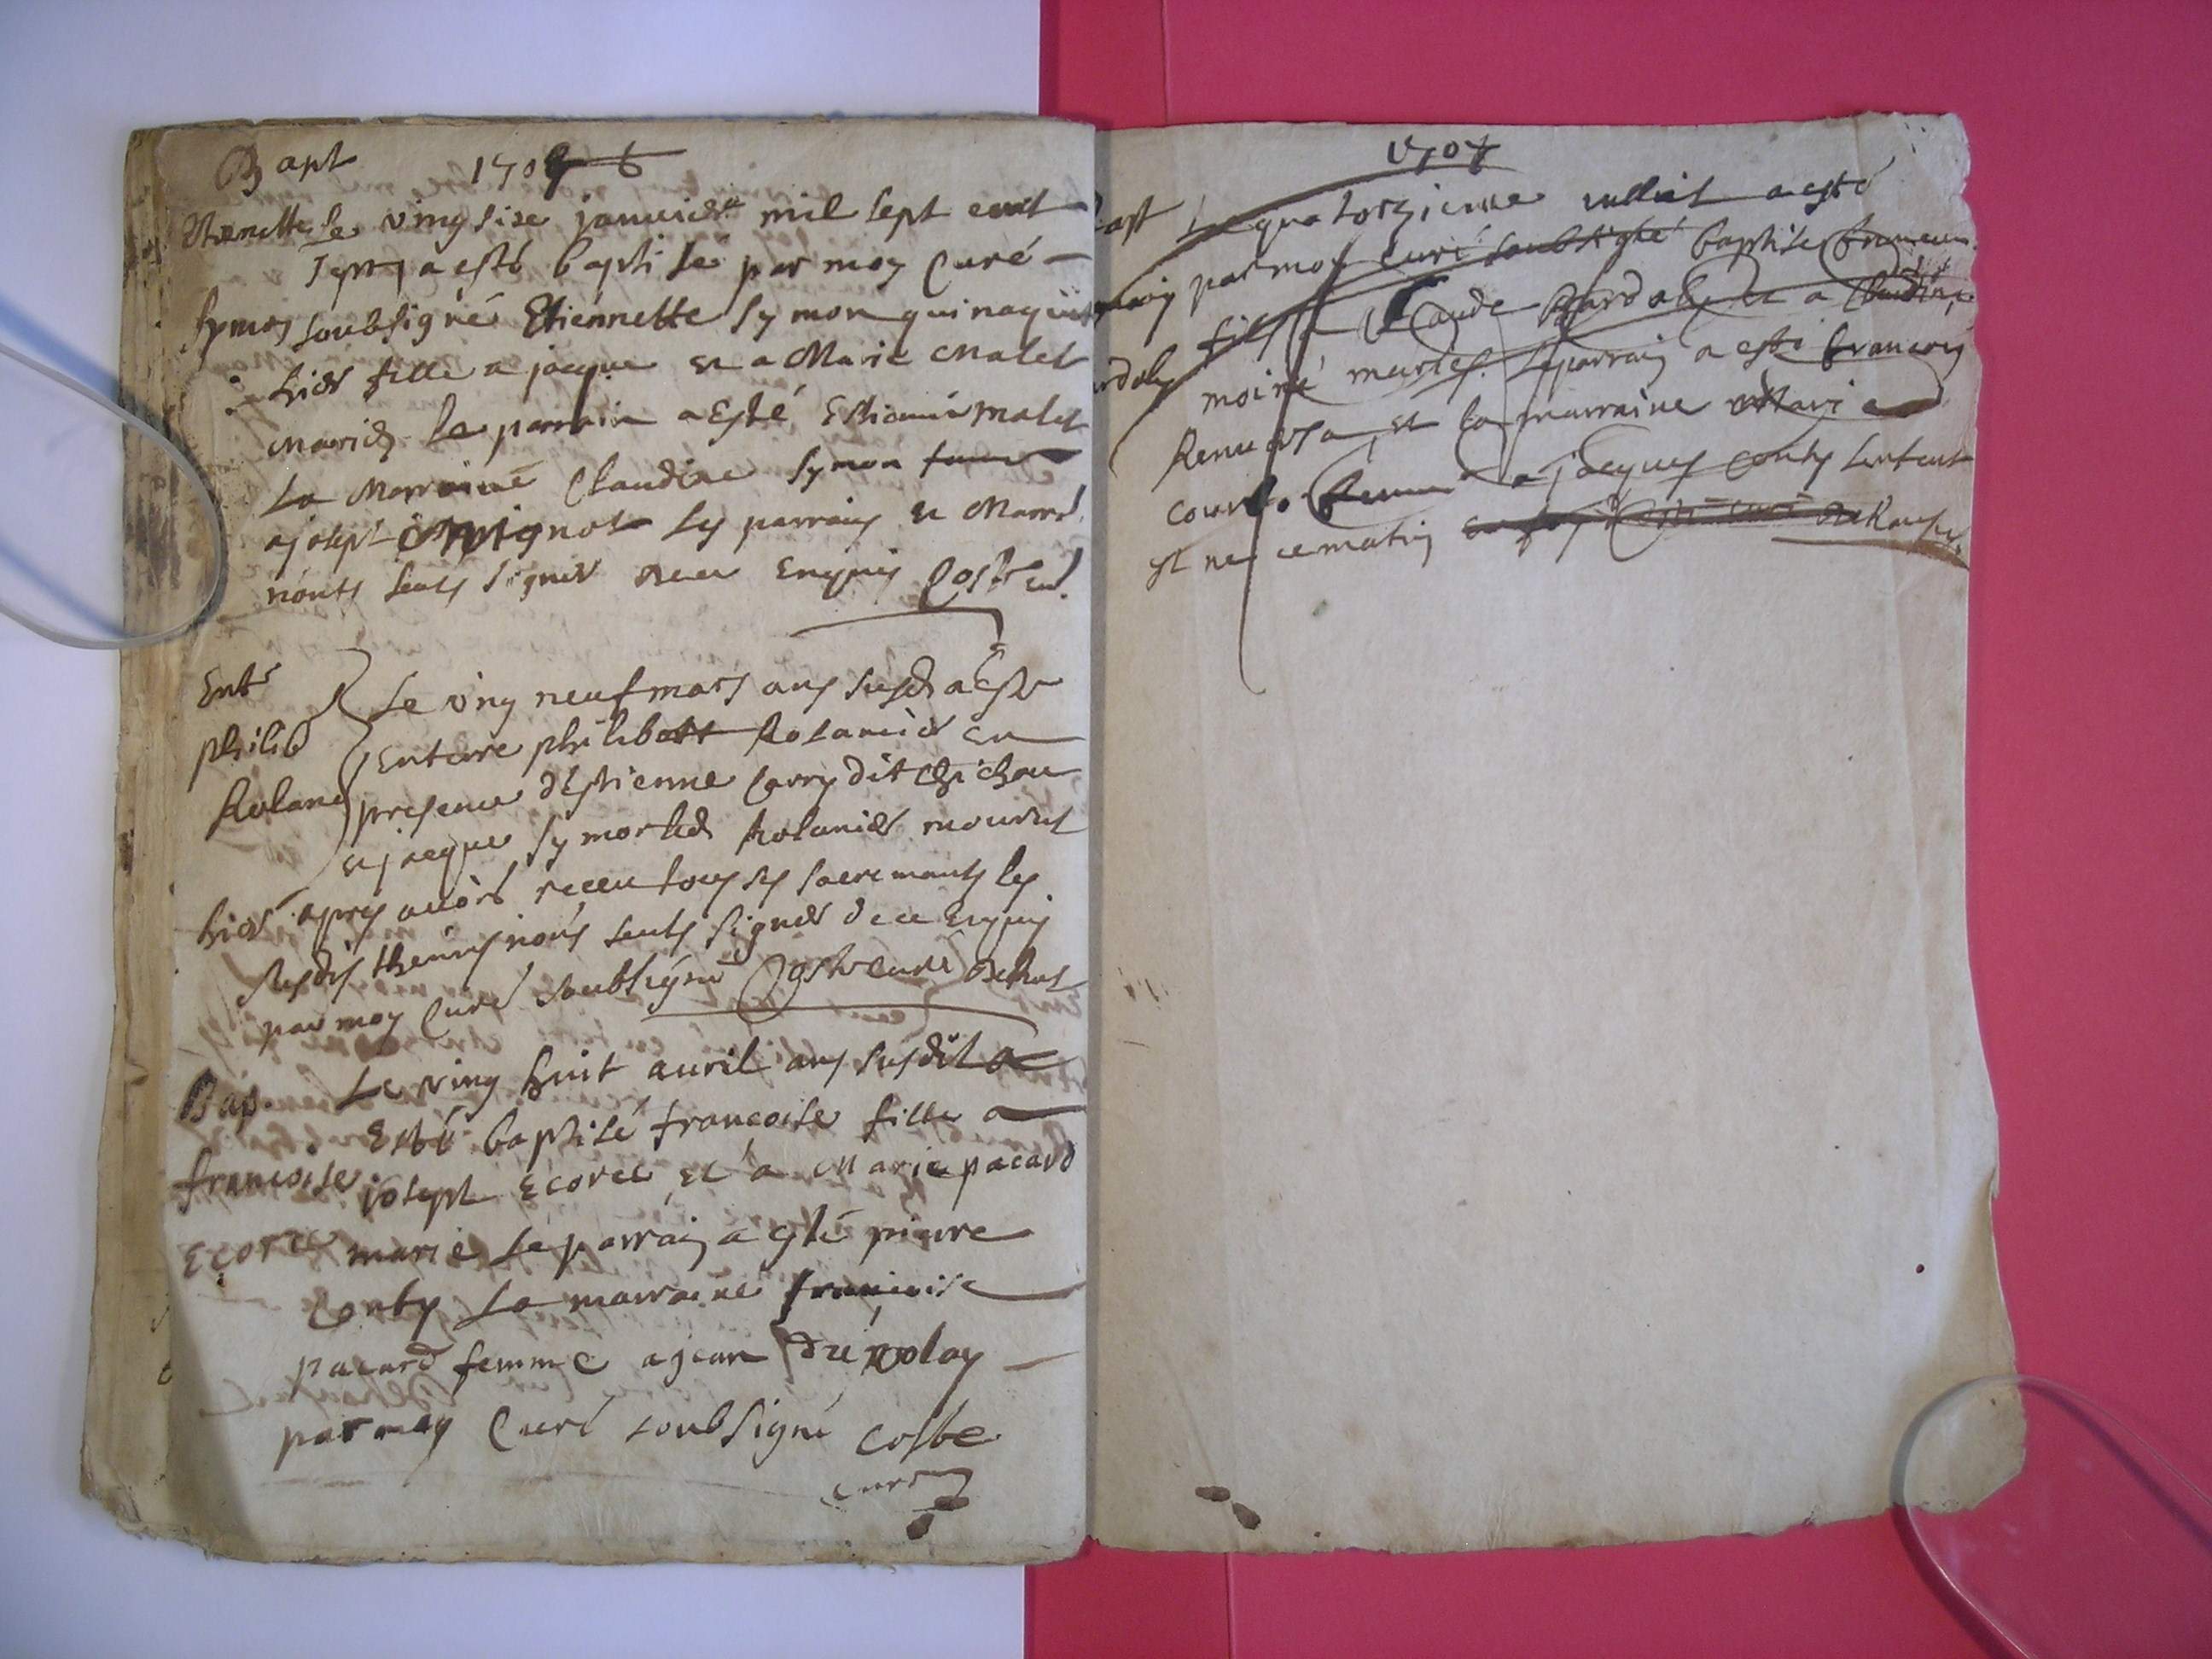 Bapt 1708 6
Etienette le vingsise januier mil sept cent
sept a esté baptisé par moy Curé
symon soubsigné Etiennette symon qui naquit
hier fille a jacque et a Marie Malet
mariez le parrain a Esté Estienne malet
La Marraine Claudine symon femme
a joseph les parrain et Marre
nonts seuts signer de ce Enquis Coste Cu
Ent
philib
Roland
Le ving neuf mars ans susd a Esté
Enterre philibert Rolanier en
presence d'Estienne Carry dit chichou
et jacque symon led Rolanier mourut
hier apres auoir receu tous ses sacremants les
susdis themins nons seuts signer de ce Enquis
par moy Curé soubsigné Coste Curé
Bap. Le ving huit auril ans susdit a
Esté baptisé francoise fille a
francoise joseph Ecorce et a Marie pacard
Ecorce marié Le parrain a esté pierre
Conty La marraine francoise
pacard femme a jean
par moy Curé soubsigné Coste
curé
1707
Bapt Le quatorzieme jullict a esté
par moy Curé soubsigné baptisé francois
fils a Claude et a Claudine
moine mariés. Le parrain a esté francois
et la marraine Marie
femme a jacques Conty lenfant
est né ce matin